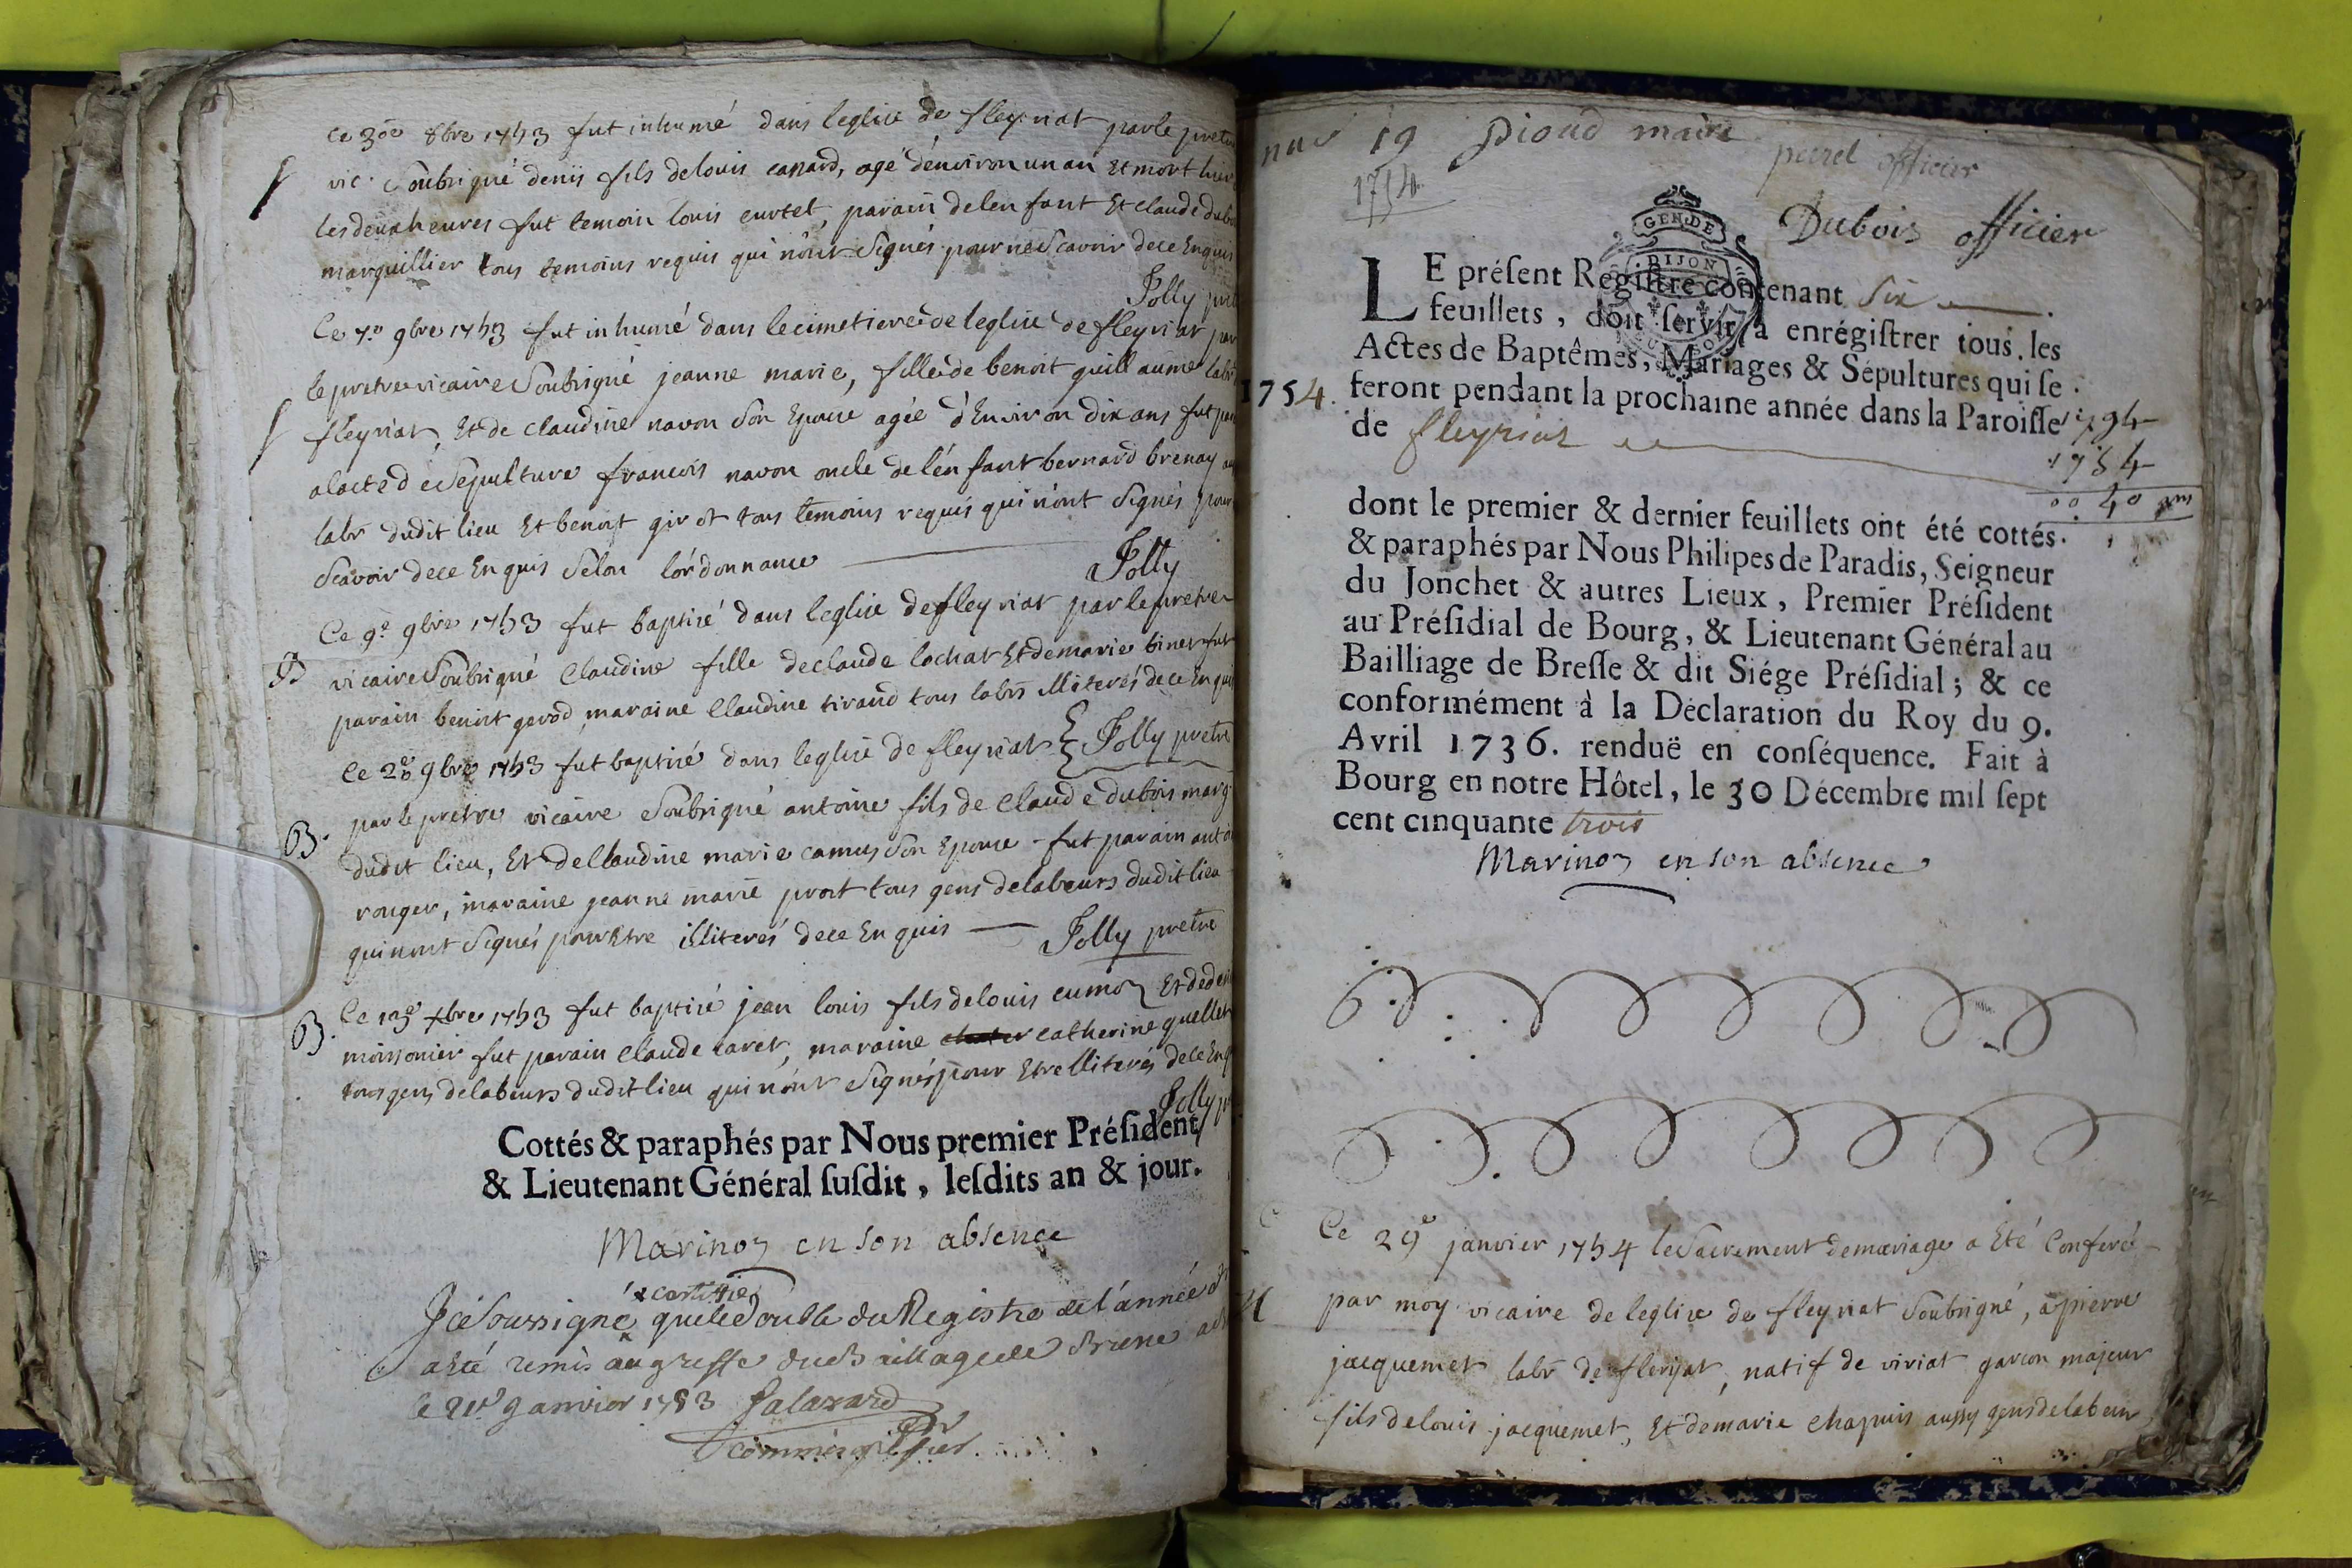 ce 30e 8bre 1753 fut inhumé dans leglise de fleyriat par le pretre
vic. Soubsigné denis fils de louis canard, agé d'environ un an Et mort hier
les deux heures fut temoin louis curtet, parain de lenfant Et claude dubois
marguillier tous temoins requis qui n'ont Signés pour ne Scavoir de ce Enquis
Jolly
Ce 7e 9bre 1753 fut inhumé dans le cimetiere de leglise de fleyriat par
le pretre vicaire Soubsigné jeanne marie, fille de benoit guillaume labr
fleyriat, Et de claudine navon Son Epouse agée d'Environ dix ans fut
a lacte de Sepulture francois navon oncle de l'enfant bernard brenay
labr dudit lieu Et benoit girot tous temoins requis qui n'ont Signés pour
Scavoir de ce Enquis Selon l'ordonnance
Jolly
Ce 9e 9bre 1753 fut baptisé dans leglise de fleyriat par le pretre
B
vicaire Soubsigné Claudine fille de claude lochat Et de marie binet fut
parain benoit gerod, maraine Claudine tiraud tous labrs illiterés de ce Enquis
Ce 28e 9bre 1753 fut baptisé dans leglise de fleyriat Jolly pretre
par le pretre vicaire Soubsigné antoine fils de Claude dubois marg
B.
dudit lieu, Et de Claudine marie camus Son Epouse fut parain
rouger, maraine jeanne marie prost tous gens de labeurs dudit lieu
qui n'ont Signés pour Etre illiterés de ce Enquis Jolly pretre
B.
Ce 13e xbre 1753 fut baptisé jean louis fils de louis cumon Et de
moissonier fut parain Claude caret, maraine catherine quellet
tous gens de labeurs dudit lieu qui n'ont Signés pour Etre illiterés de ce
Jolly
Cottés & paraphés par Nous premier Préſident
& Lieutenant Général ſuſdit, leſdits an & jour.
Marinon en son absence
& certiffie
Je Soussigné que le Double du Registre de l'année
a eté remis au greffe du Baillage de Bresse
le 21e Janvier 1753 Salazard
commis greffier
19 Pioud maire
perret officier
1754
GEN. DE
DIJON
Dubois officier
LE préſent Regiſtre contenant Six
feuillets, doit ſervir à enrégiſtrer tous les
Actes de Baptêmes, Mariages & Sépultures qui ſe
1754. feront pendant la prochaine année dans la Paroiſſe 1794
de fleyriat
1754
0040 ans
dont le premier & dernier feuillets ont été cottés
& paraphés par Nous Philipes de Paradis, Seigneur
du Jonchet & autres Lieux, Premier Préſident
au Préſidial de Bourg, & Lieutenant Général au
Bailliage de Breſſe & dit Siége Préſidial; & ce
conformément à la Déclaration du Roy du 9.
Avril 1736. renduë en conſéquence. Fait à
Bourg en notre Hôtel, le 30 Décembre mil ſept
cent cinquante trois
Marinon en son absence
Ce 29e janvier 1754 le Sacrement de mariage a Eté Conferé
M
par moy vicaire de leglise de fleyriat Soubsigné, a pierre
jacquemet labr de fleriat, natif de viriat garcon majeur
fils de louis jacquemet, Et de marie chapuis aussy gens de labeur